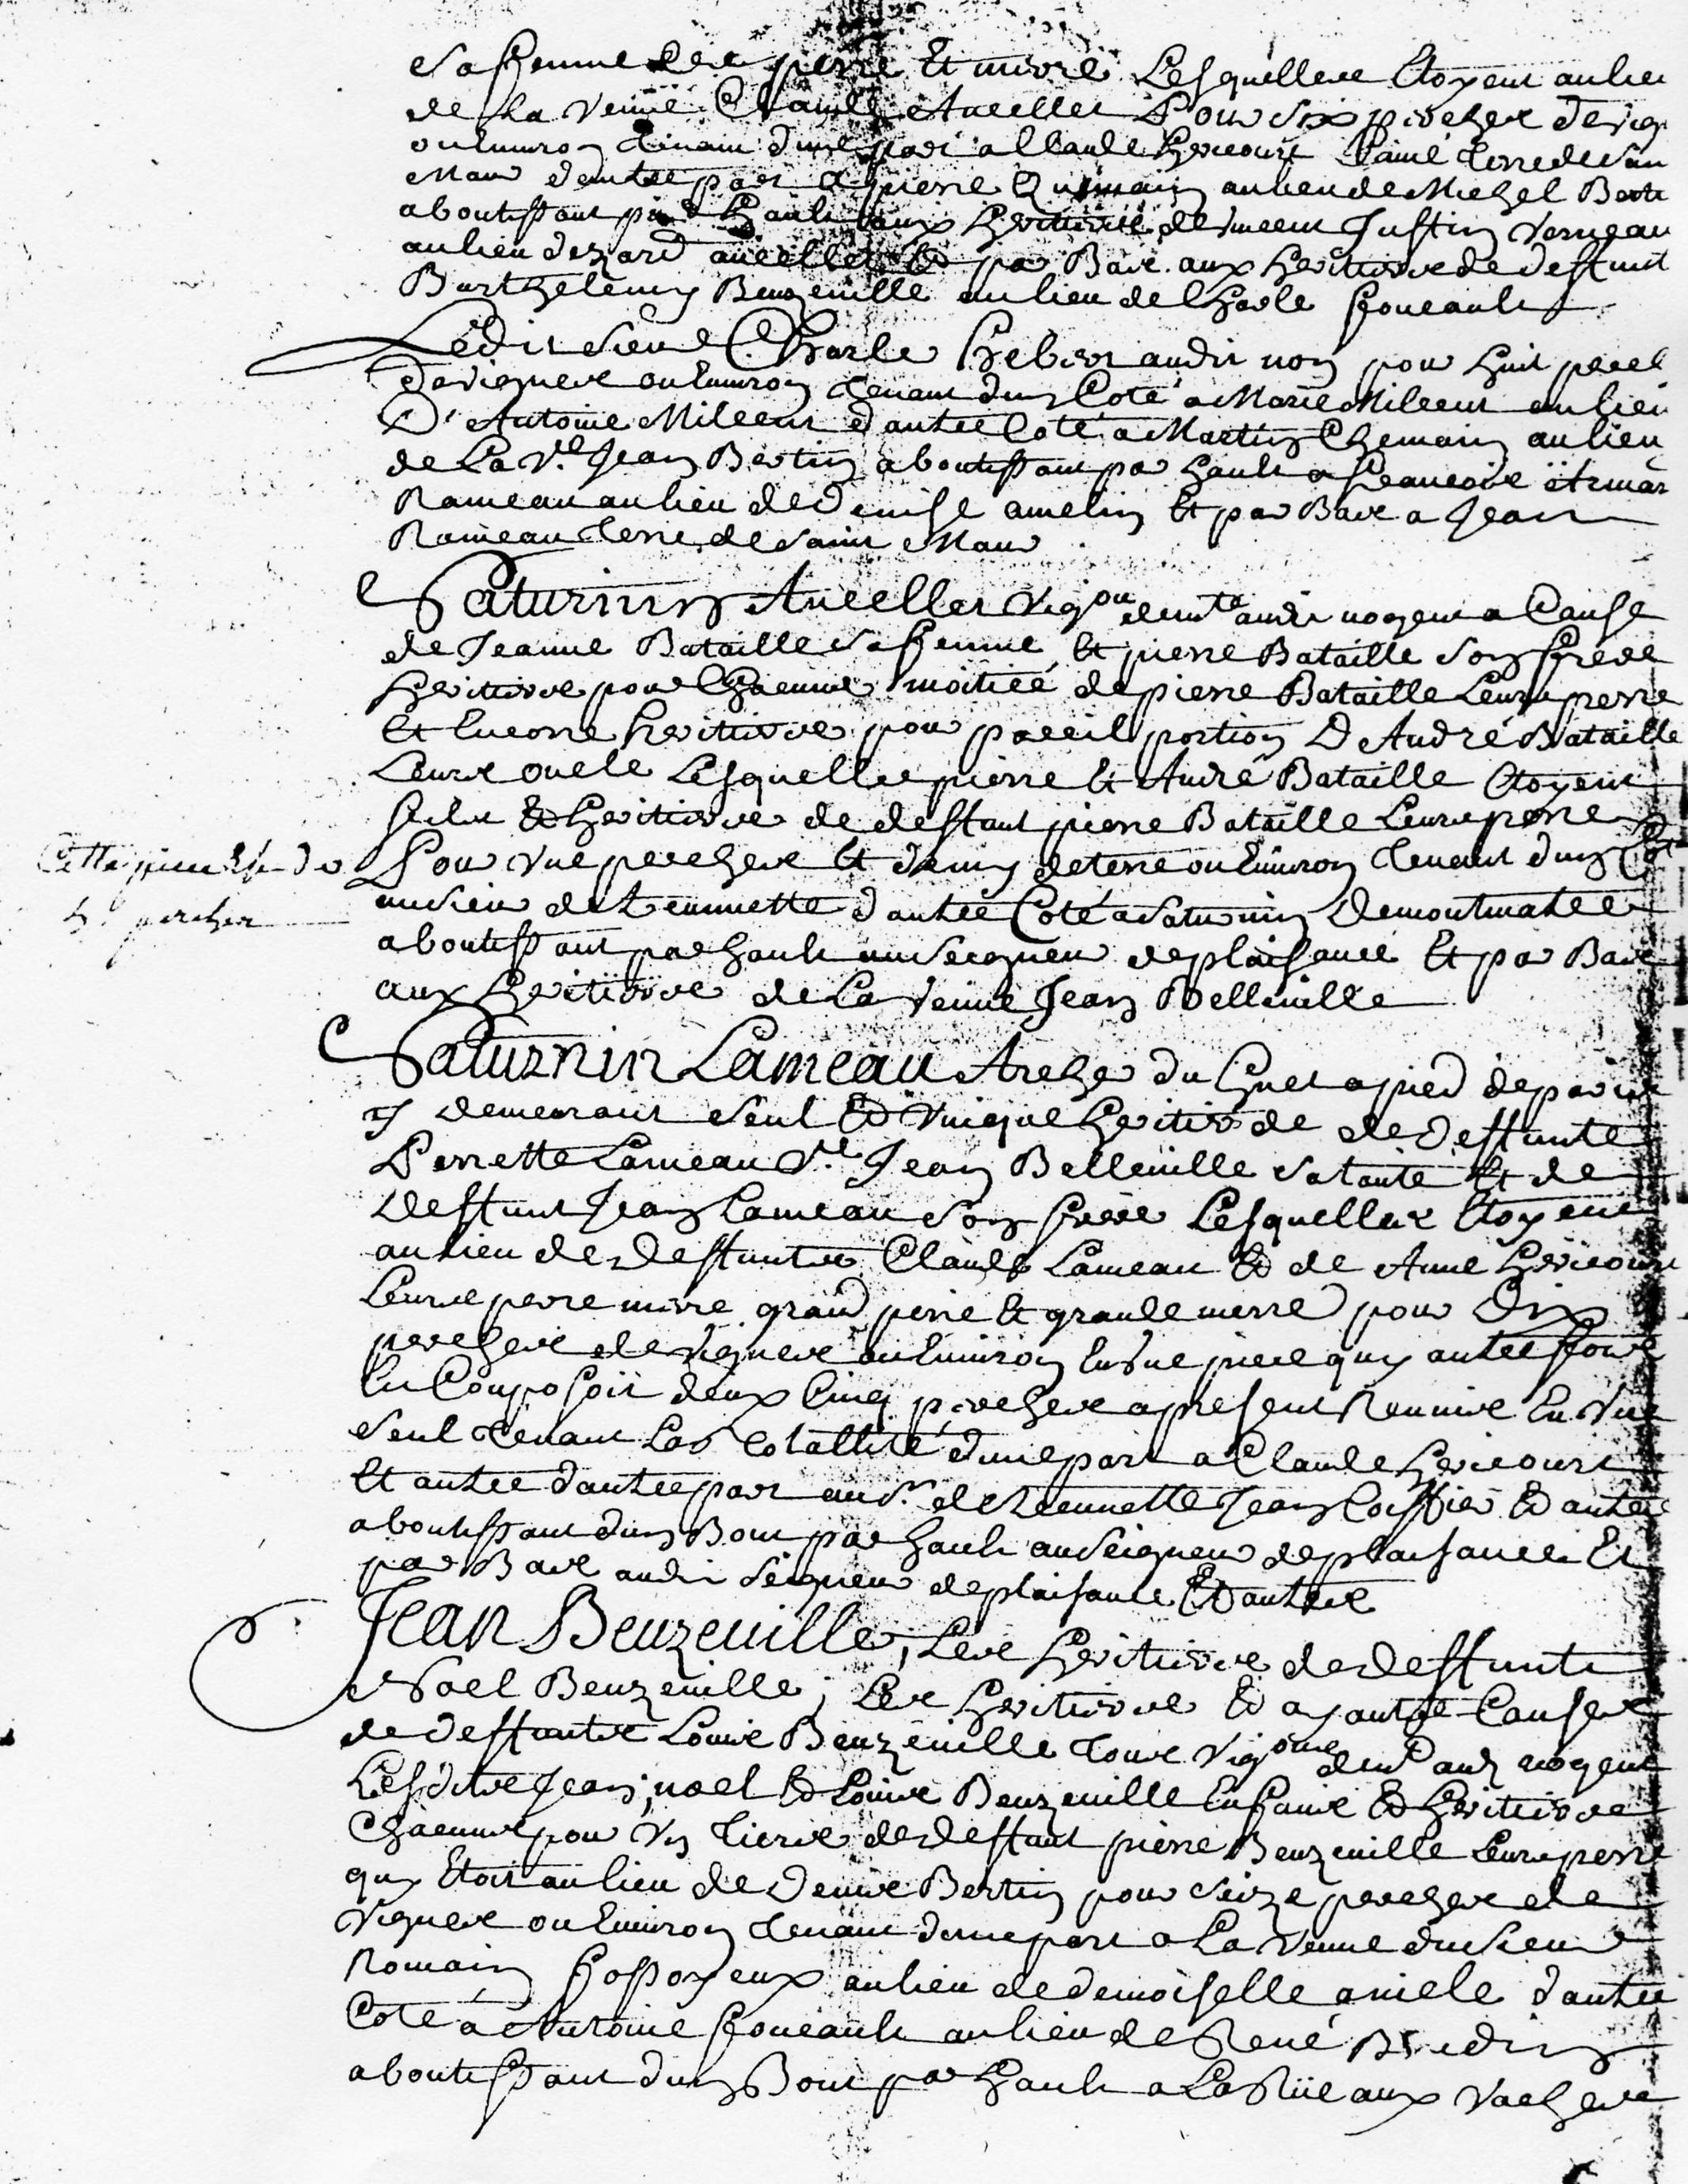 sa femme ses perre Et merre Lesquelles Etoyent au lieu
de La veuve Claude Ancellet Pour six perches de vig
ou Environ tenant d'une part a Claude hericourt Terre de S
Maur d'autre part a pierre au lieu de Michel
aboutissant par hault aux heritiers de Vincent Justin Verneau
au lieu ancellet & par Bas aux heritiers de deffunt
Barthelemy Beuzeville au lieu de Charle foucault
Ledit sieur Charle hebert audit nom pour huit perch
de vignes ou Environ tenant d'un Coté a Marie Milcent au lieu
D'Antoine Milcent d'autre Coté a Martin Chemain au lieu
de La Ve Jean Bertin aboutissant par hault a francois
Rameau au lieu de Denise amelin Et par Bas a Jean
Rameau terre de saint Maur
Saturnin Ancellet Vigon demt audit nogent a Cause
de Jeanne Bataille sa femme, Et pierre Bataille son frere
heritiers pour Chacune moitiée de pierre Bataille Leurs perre
Et Encorre heritiers pour pareil portion D'André Bataille
Leurs oncle Lesquelles pierre Et André Bataille Etoyent
seuls & heritiers de deffunt pierre Bataille Leurs perre
Pour une perches Et demy de terre ou Environ tenant d'un Coté
au sieur de d'autre Coté a saturnin Demontmatre
aboutissant par hault au seigneur de plaisance Et par Bas
aux heritiers de La veuve Jean Belleville
Cette piece de
perches
Saturnin Lameau Archer du Guet a pied de paris
y demeurant seul & Unique heritier de deffunte
Perrette Lameau Ve Jean Belleville sa tante Et de
deffunt Jean Lameau son frere Lesquelles Etoyent
au lieu de deffunts Claude Lameau & de Anne hericourt
Leurs perre merre grand perre Et grande merre pour Dix
perches de vignes ou Environ En une piece quy autrefois
En Composoit deux Cinq perches apresent Reunies En Un
seul tenant Las totallité d'une part a Claude hericourt
Et autre d'autre part au Sr. de Jean & autres
aboutissant d'un Bout par hault au seigneur de plaisance Et
par Bas audit seigneur de plaisance & autres
Jean Beuzeville, Les heritiers de deffunt
Noel Beuzeville, Les heritiers & ayantse Causes
de deffunte Louise Beuzeville tous Vigons demt audt nogent
Lesdits Jean, noel & Louise Beuzeville Enfans & heritiers
Chacuns pour Un tiers de deffunt pierre Beuzeville Leurs perre
quy Etoit au lieu de Denise Bertin pour seize perches de
Vignes ou Environ tenant d'une part a La veuve du sieur
Romain fossoyeux au lieu de demoiselle d'autre
Coté a Antoine foucault au lieu de René
aboutissant d'un Bout par hault a La Rüe aux Vaches